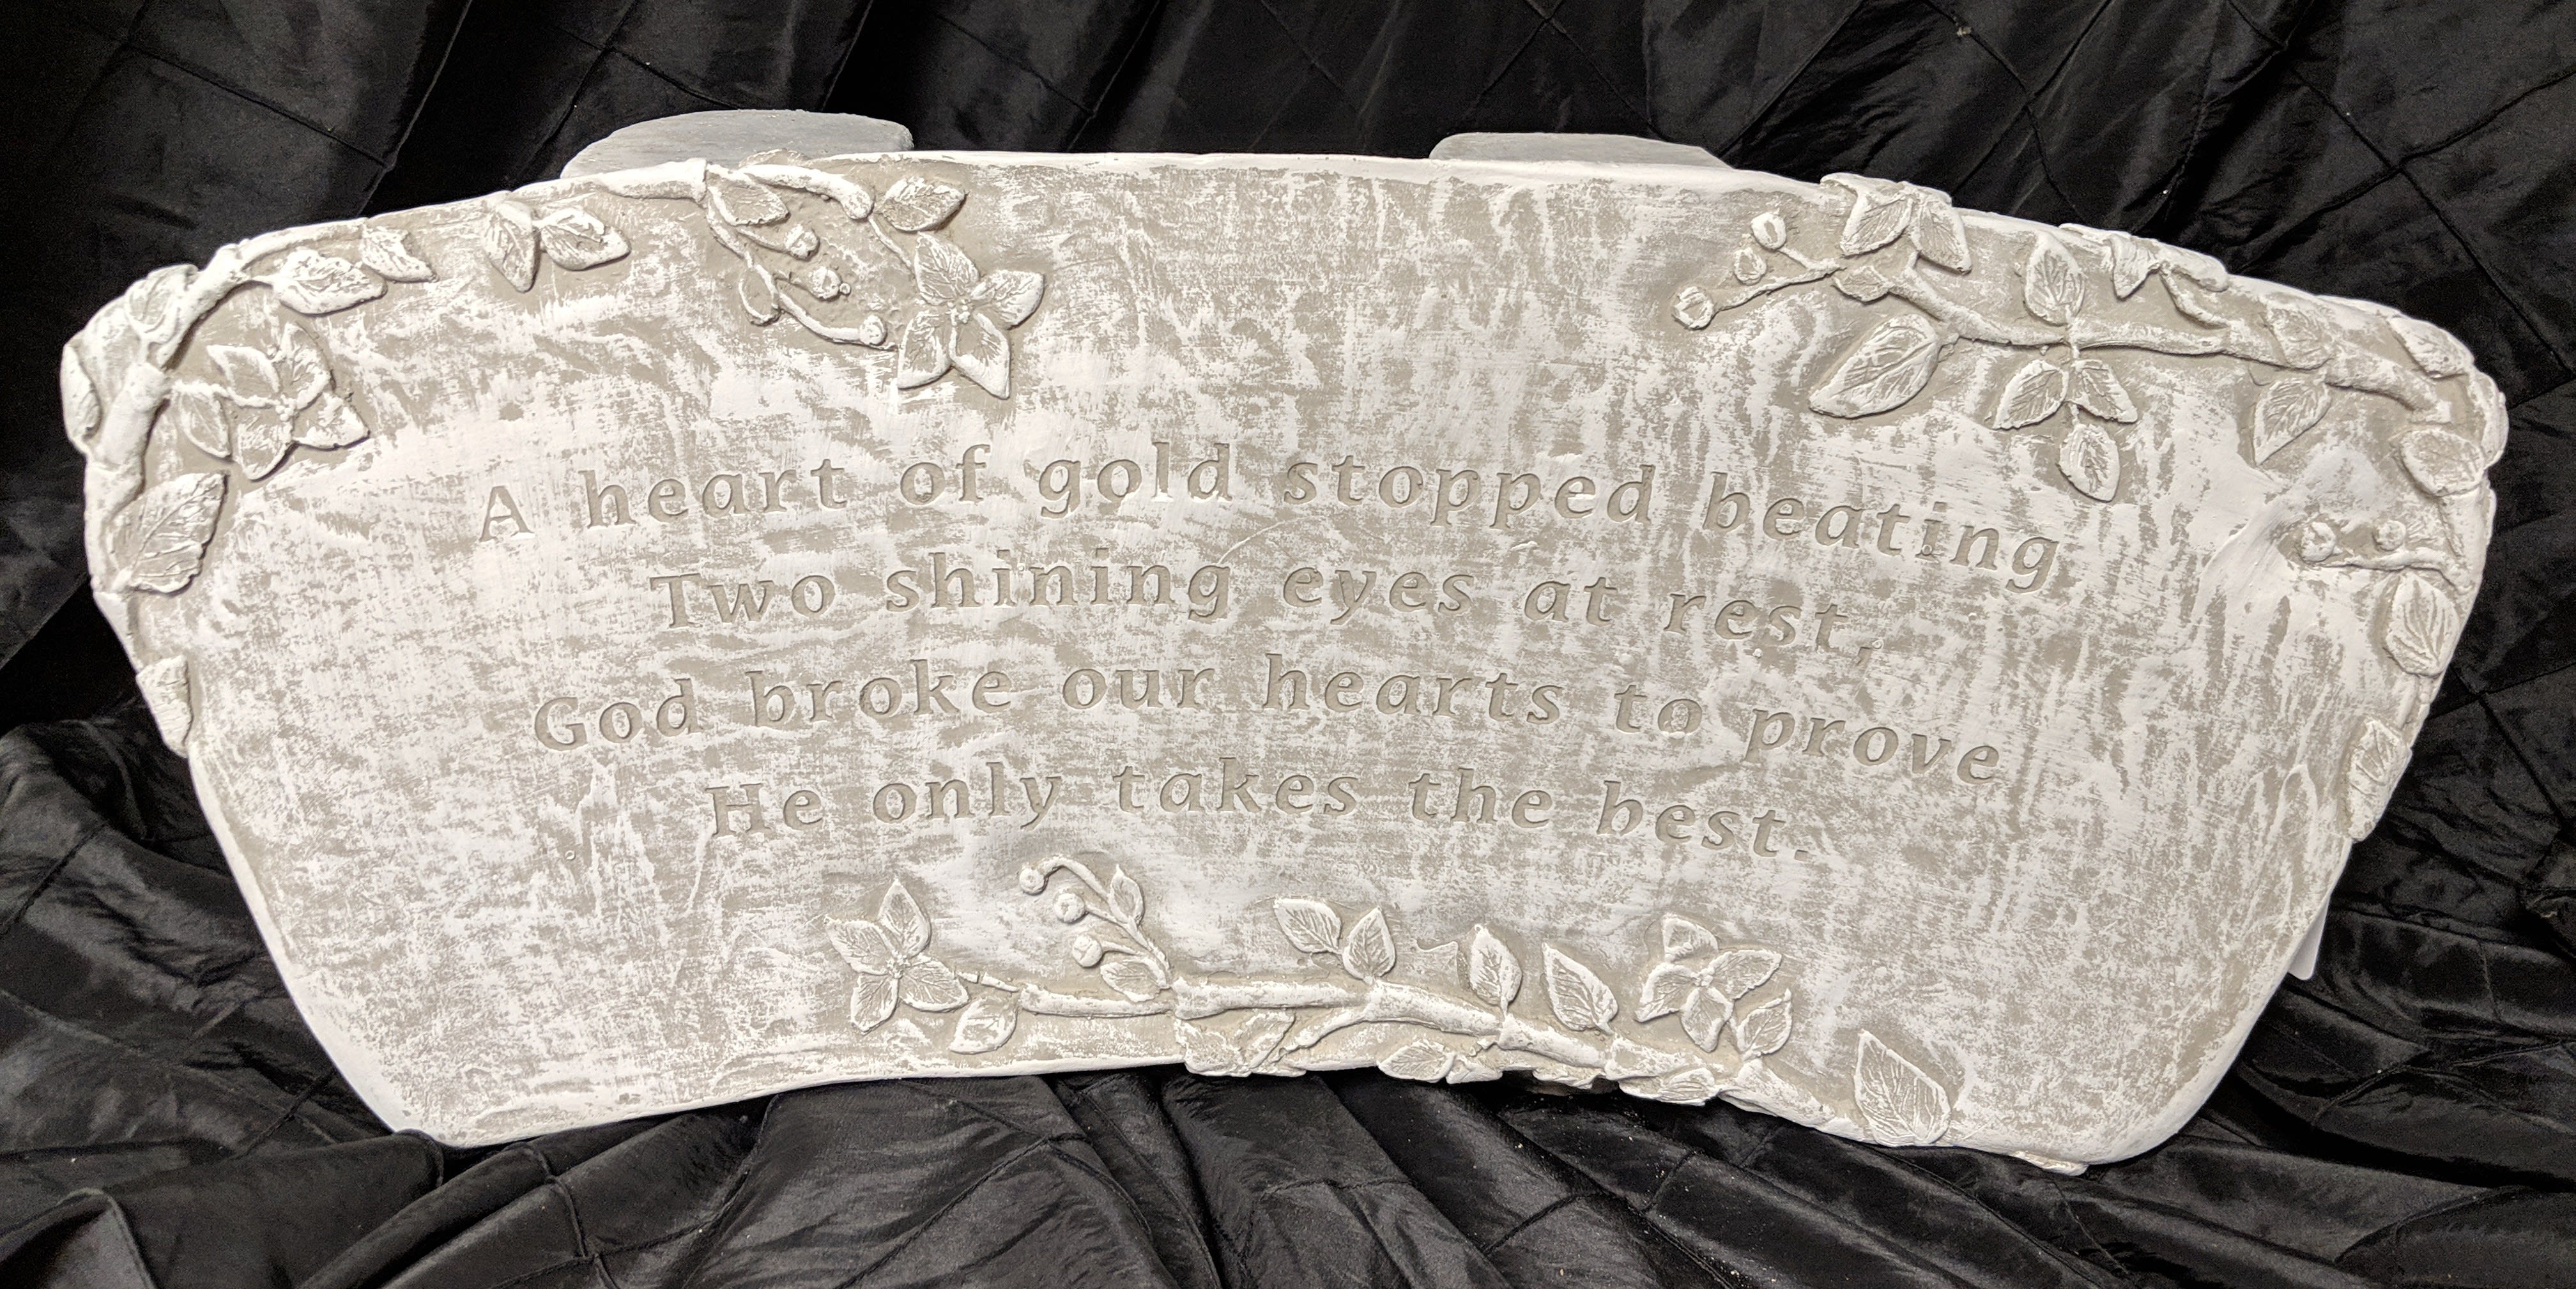 A heart of gold stopped beating
Two shining eyes at rest,
God broke our hearts to prove
He only takes the best.